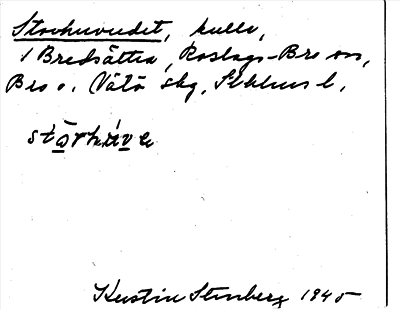 Storhuvudet, kulle,
i Bredsättra, Roslags-Bro sn,
Bro o. Vätö skg, Sthlms l,
stōrhùve
Kerstin Stenberg 1945